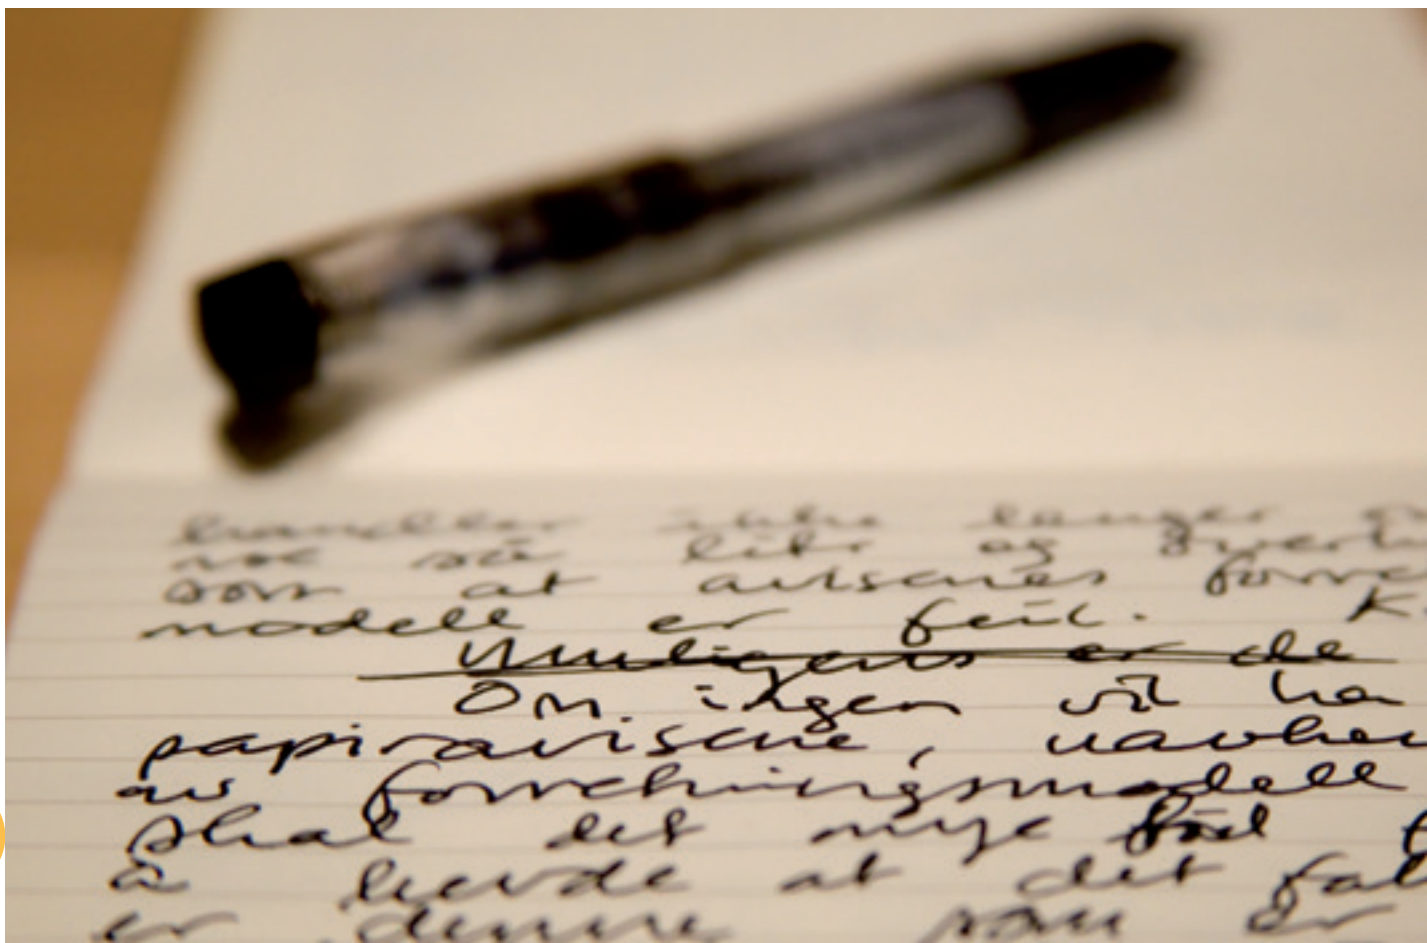 handler ikke lenger
noe så lite og
som at avisenes forre
modell er feil. K
Muligens er de
Om ingen vil ha
papiravisene, uavhen
av forretningsmodell
skal det mye til
å hevde at det
er denne som er